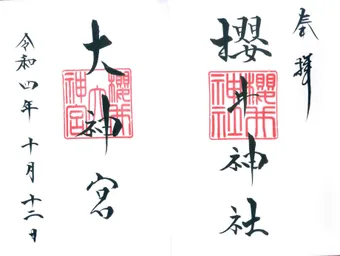 奉拝
櫻井神社
櫻井神社
大神宮
櫻井大神宮
令和四年 十月 十二日